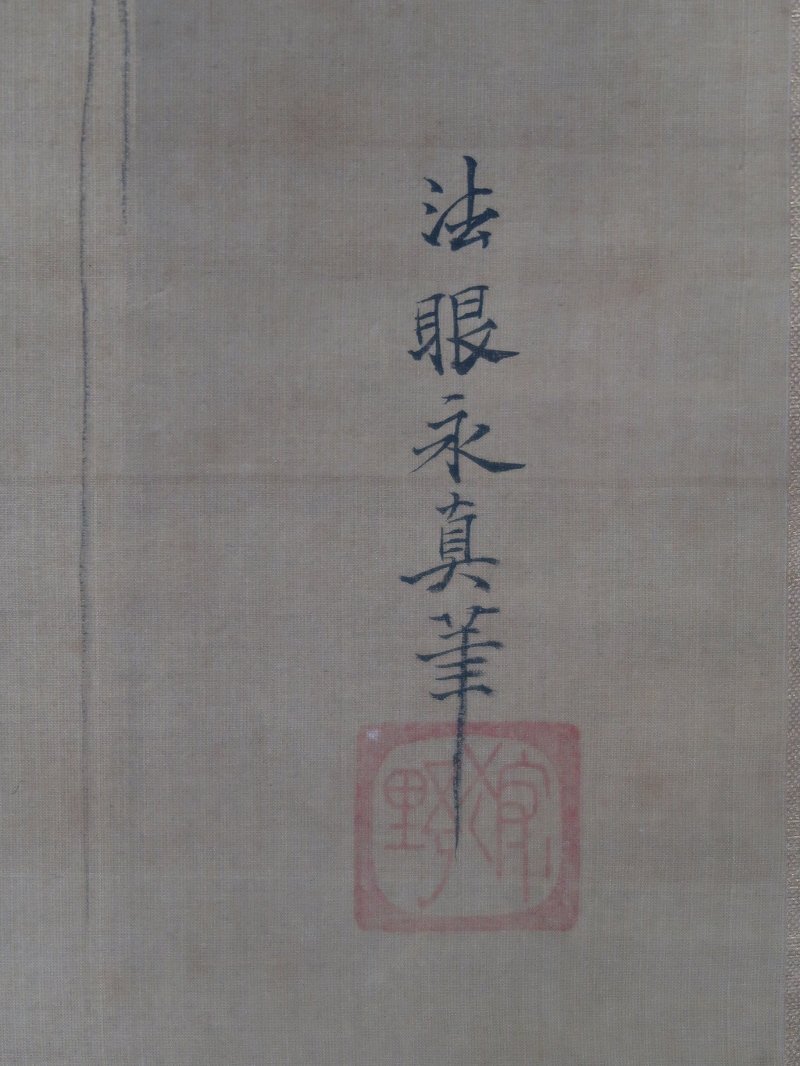 法眼永真筆
狩野